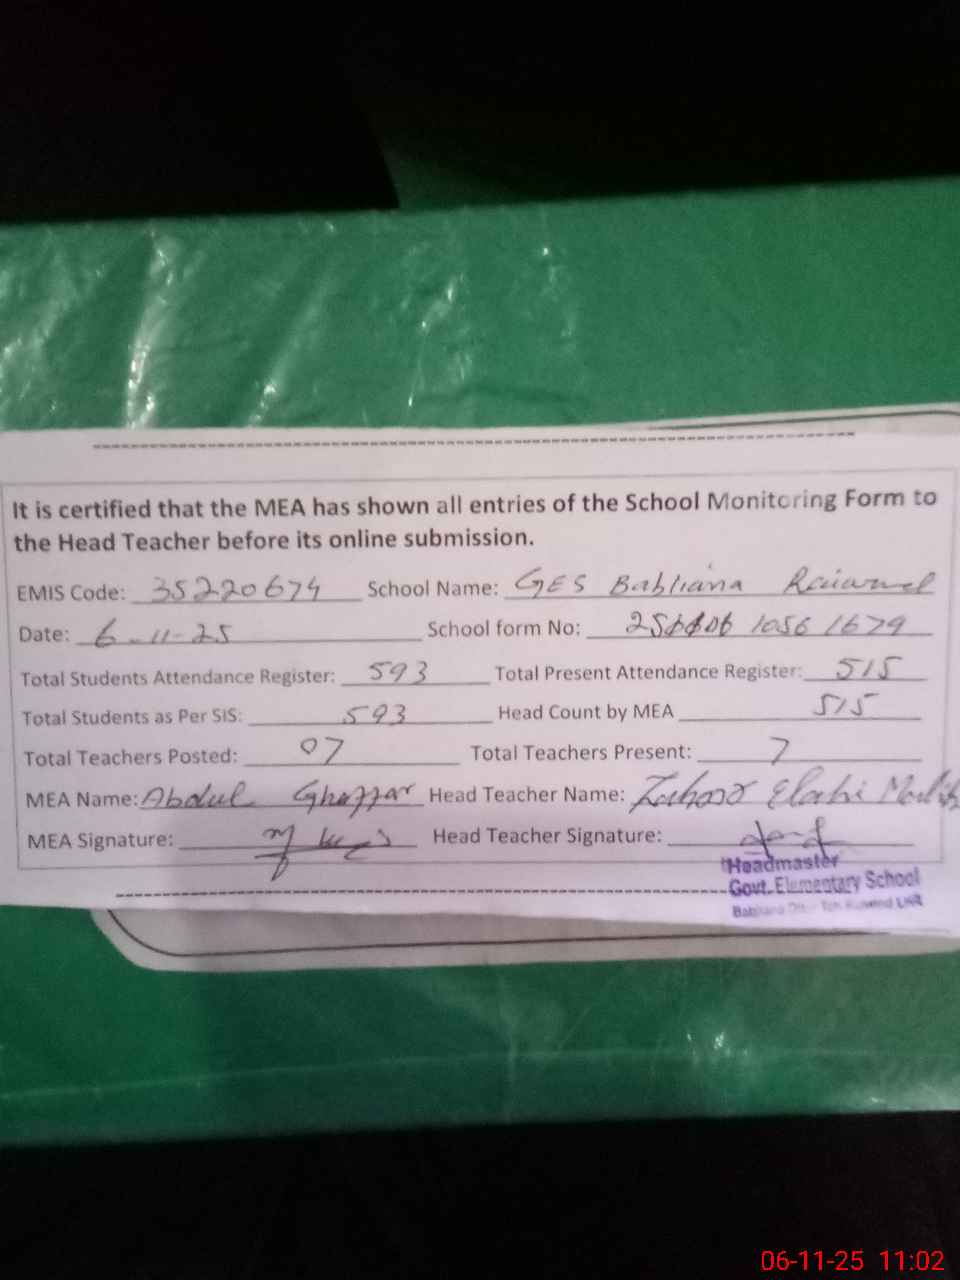 It is certified that the MEA has shown all entries of the School Monitoring Form to
the Head Teacher before its online submission.
EMIS Code: 35220674 School Name: GES Babliana Raiwind
Date: 6-11-25 School form No: 1056 1679
Total Students Attendance Register: 593 Total Present Attendance Register: 515
Total Students as Per SIS: 593 Head Count by MEA 515
Total Teachers Posted: 07 Total Teachers Present: 7
MEA Name: Abdul Ghaffar Head Teacher Name: Zahoor Elahi
MEA Signature: Head Teacher Signature:
Headmaster
Govt. Elementary School
06-11-25 11:02